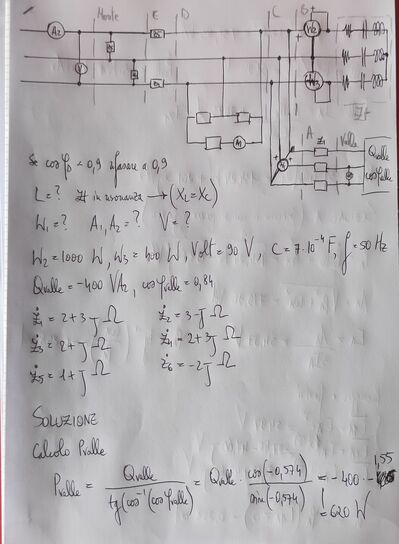 Monte E D C B A
A2
V
W2
W3
A1
Zt
A Z1 Valle
Qvalle
cosφvalle
Se cosφD < 0,9 rifasare a 0,9
L = ? Zt in risonanza → (XL = XC)
W1 = ? A1, A2 = ? V = ?
W2 = 1000 W, W3 = 400 W, Volt = 90 V, C = 7·10⁻⁴ F, f = 50 Hz
Qvalle = -400 VAr, cosφvalle = 0,84
Ż1 = 2 + 3J Ω Ż2 = 3 - J Ω
Ż3 = 2 + J Ω Ż4 = 2 + 3J Ω
Ż5 = 1 + J Ω Ż6 = -2J Ω
SOLUZIONE
Calcolo Pvalle
Pvalle = Qvalle / tg(cos⁻¹(cosφvalle)) = Qvalle · cos(-0,574) / sin(-0,574) = -400 · -1,55
= 620 W